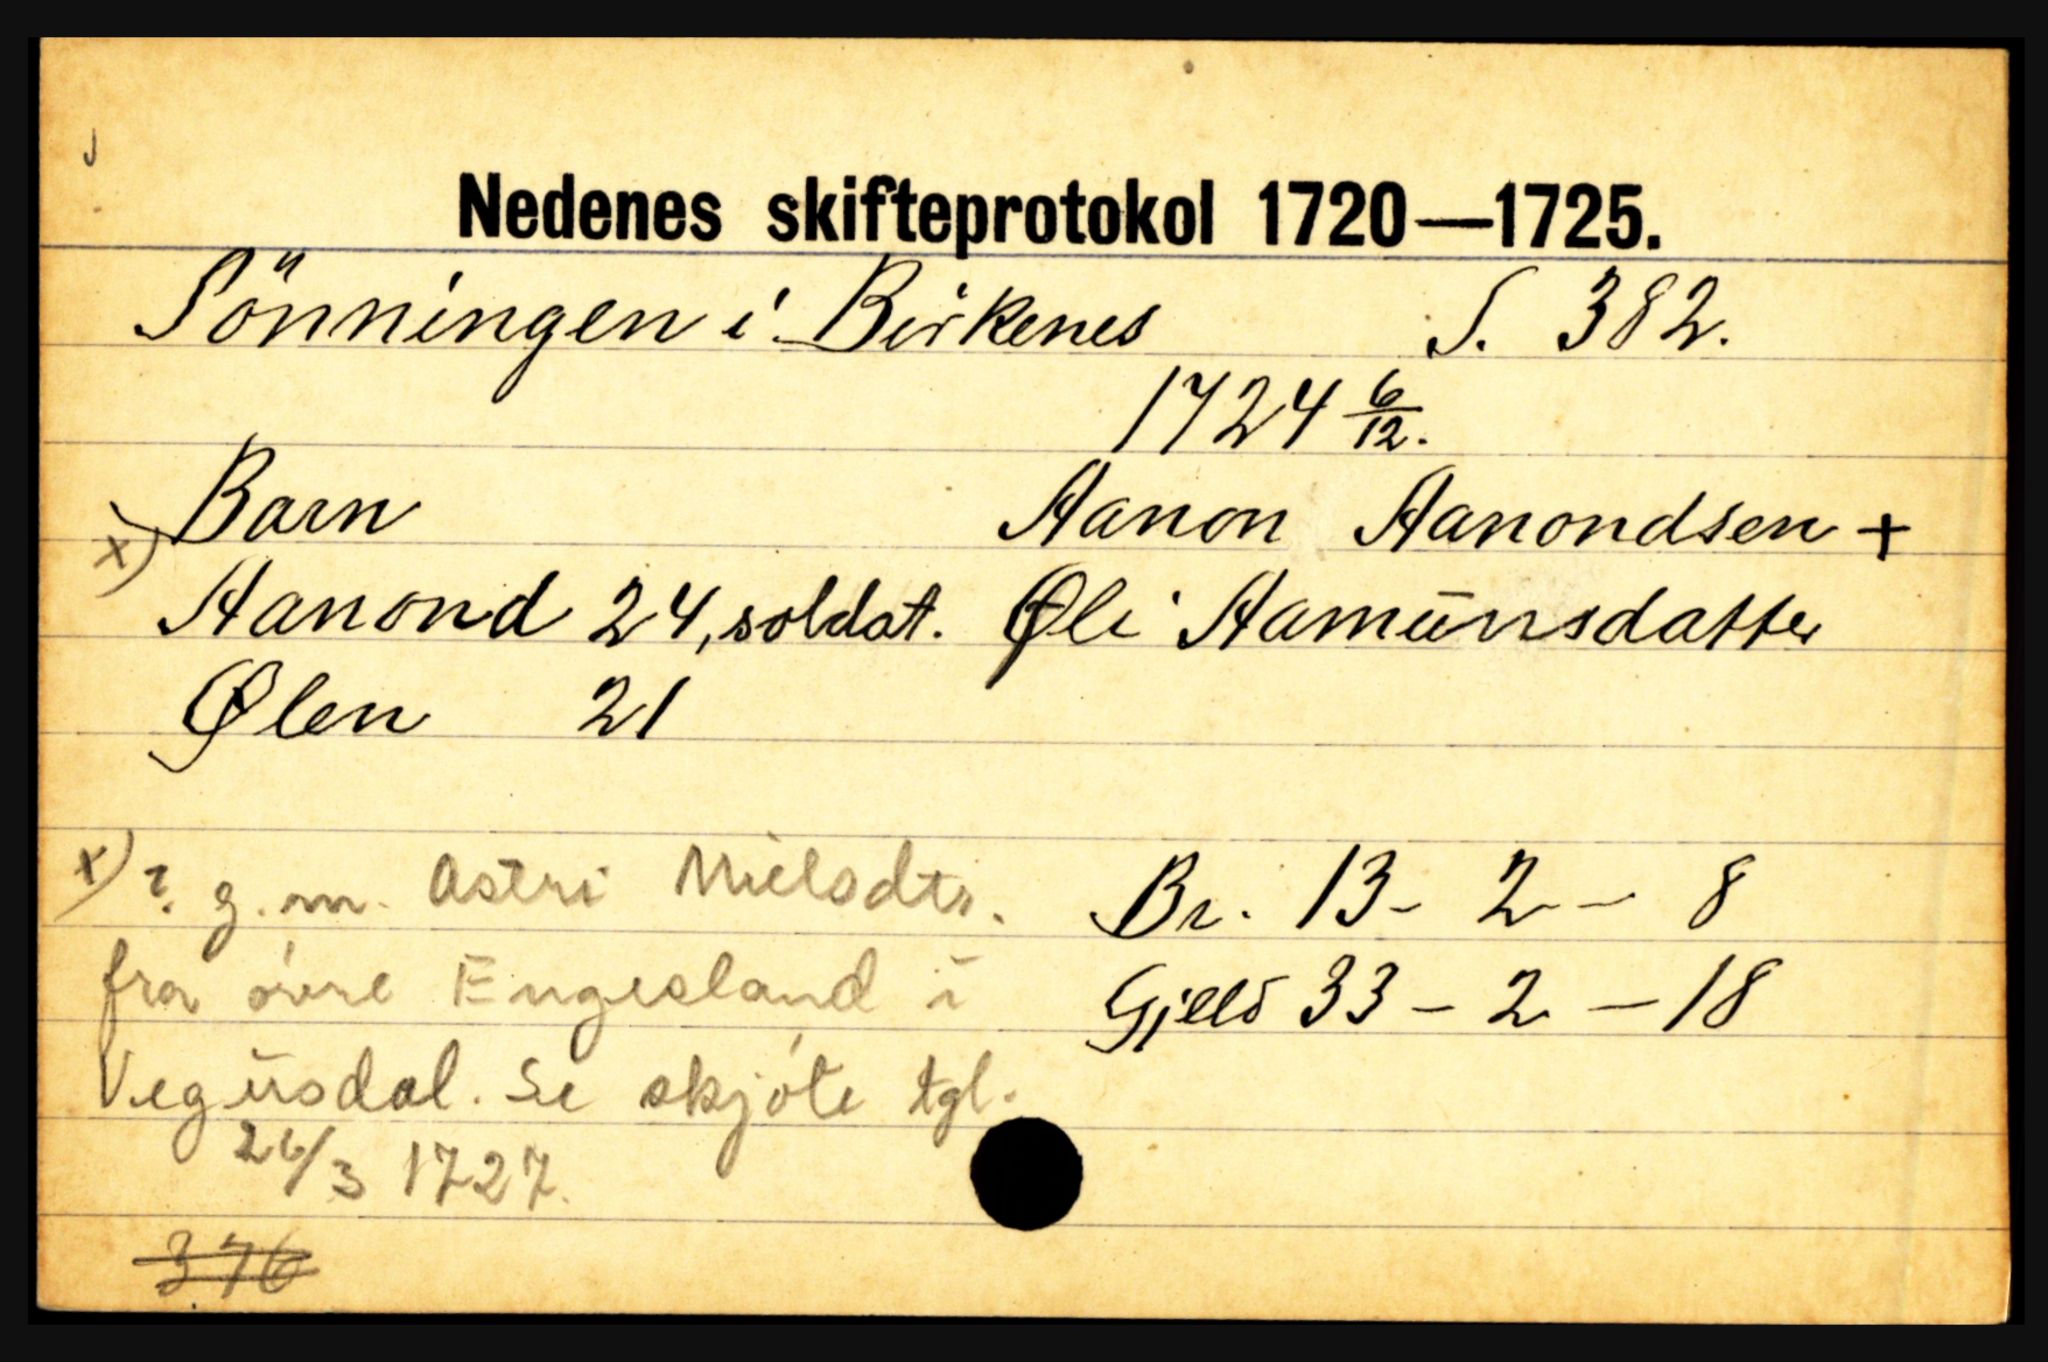 Nedenes skifteprotokol 1720—1725.
Sönningen i Birkenes S. 382.
1724 6/12.
Barn Aanon Aanondsen +
x) Aanond 24, soldat. Øli Aamunsdatter
Ølen 21
x) ? g.m. Astri Nielsdtr. Br. 13 - 2 - 8
fra övre Engesland i Gjeld 33 - 2 - 18
Vegusdal. Se skjöte tgl.
26/3 1727.
376